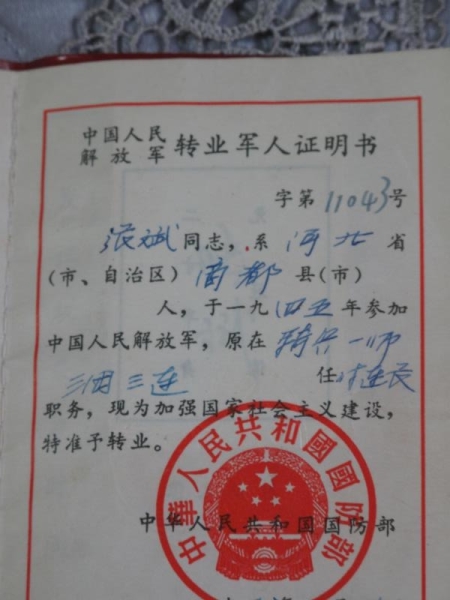 中国人民
解放军 转业军人证明书
字第11043号
张斌同志，系河北省
（市、自治区）商都县（市）
人，于一九四五年参加
中国人民解放军，原在骑兵一师
三团三连 任付连长
职务，现为加强国家社会主义建设，
特准予转业。
中华人民共和国国防部
中華人民共和國國防部